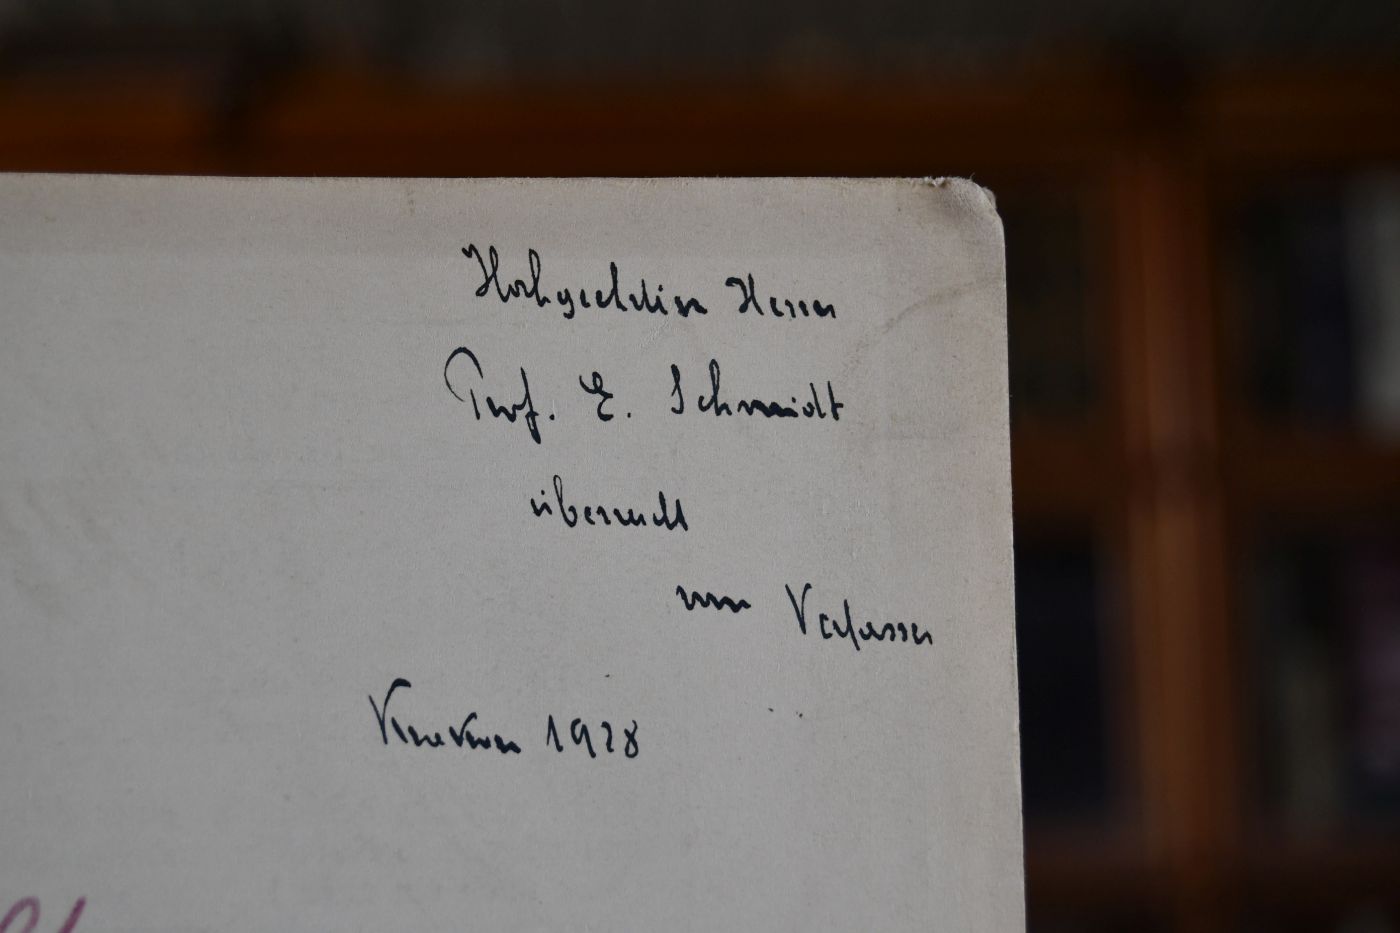 Hochgeehrten Herrn
Prof. E. Schmidt
überreicht
vom Verfasser
1928